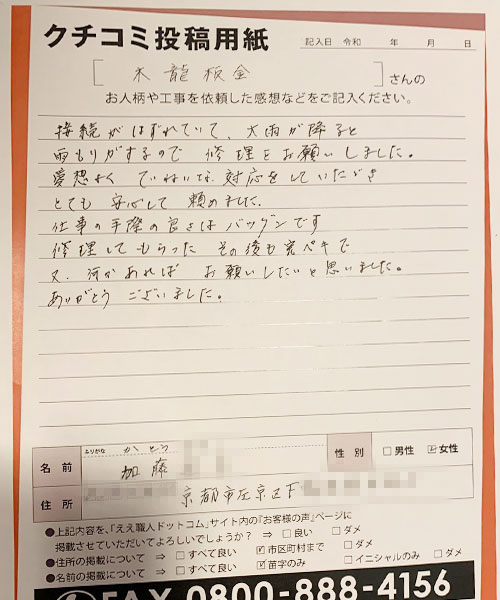 クチコミ投稿用紙
記入日 令和 年 月 日
[木龍板金]さんの
お人柄や工事を依頼した感想などをご記入ください。
接続がはずれていて、大雨が降ると
雨もりがするので 修理をお願いしました。
愛想よく ていねいな対応をしていただき
とても 安心して 頼めました。
仕事の手際の良さは バツグンです
修理してもらった その後も完ペキで
又、何かあれば お願いしたいと思いました。
ありがとう ございました。
ふりがな かとう
名前 加藤 性別 □男性 ☑女性
住所 京都市左京区下
●上記内容を、「ええ職人ドットコム」サイト内の『お客様の声』ページに
掲載させていただいてよろしいでしょうか? ⇒ □良い □ダメ
●住所の掲載について ⇒ □すべて良い ☑市区町村まで □ダメ
●名前の掲載について ⇒ □すべて良い ☑苗字のみ □イニシャルのみ □ダメ
FAX 0800-888-4156